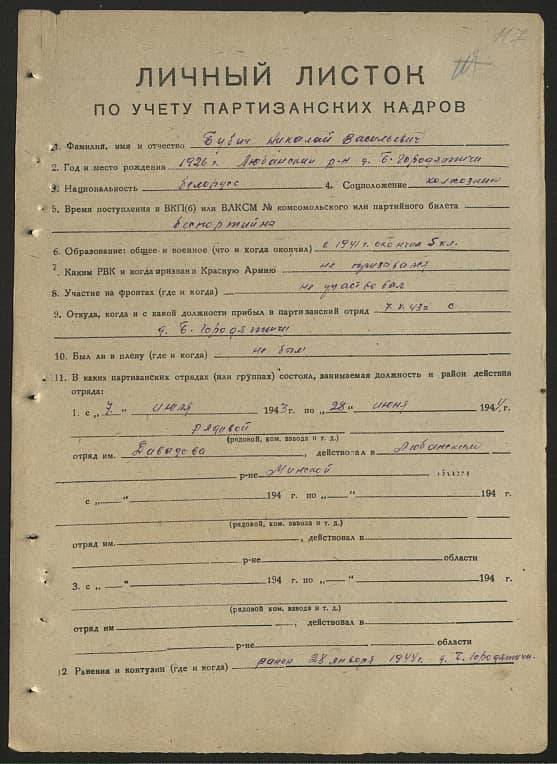 117
ЛИЧНЫЙ ЛИСТОК
ПО УЧЕТУ ПАРТИЗАНСКИХ КАДРОВ
1. Фамилия, имя и отчество Бувич Николай Васильевич
2. Год и место рождения 1926 г. Любанский р-н д. Б-Городятичи
3. Национальность белорус 4. Соцположение колхозник
5. Время поступления в ВКП(б) или ВЛКСМ № комсомольского или партийного билета
беспартийна
6. Образование: общее и военное (что и когда окончил) в 1941 г. окончил 5 кл.
7. Каким РВК и когда призван в Красную Армию не призвался
8. Участие на фронтах (где и когда) не участвовал
9. Откуда, когда и с какой должности прибыл в партизанский отряд 43 г с
д. Б-Городятичи
10. Был ли в плену (где и когда) не был
11. В каких партизанских отрядах (или группах) состоял, занимаемая должность и район действия
отряда:
1. с „7“ июля 1943 г. по „28“ июня 1944 г.
рядовой
(рядовой, ком. взвода и т. д.)
отряд им. Давыдова, действовал в Любанском
р-не Минской области
с „ “ 194 г. по „ “ 194 г.
(рядовой, ком. взвода и т. д.)
отряд им. , действовал в
р-не области
3. с „ “ 194 г. по „ “ 194 г.
(рядовой, ком. взвода и т. д.)
отряд им , действовал в
р-не области
12. Ранения и контузии (где и когда) ранен 28 января 1944 г. д. Б-Городятичи.